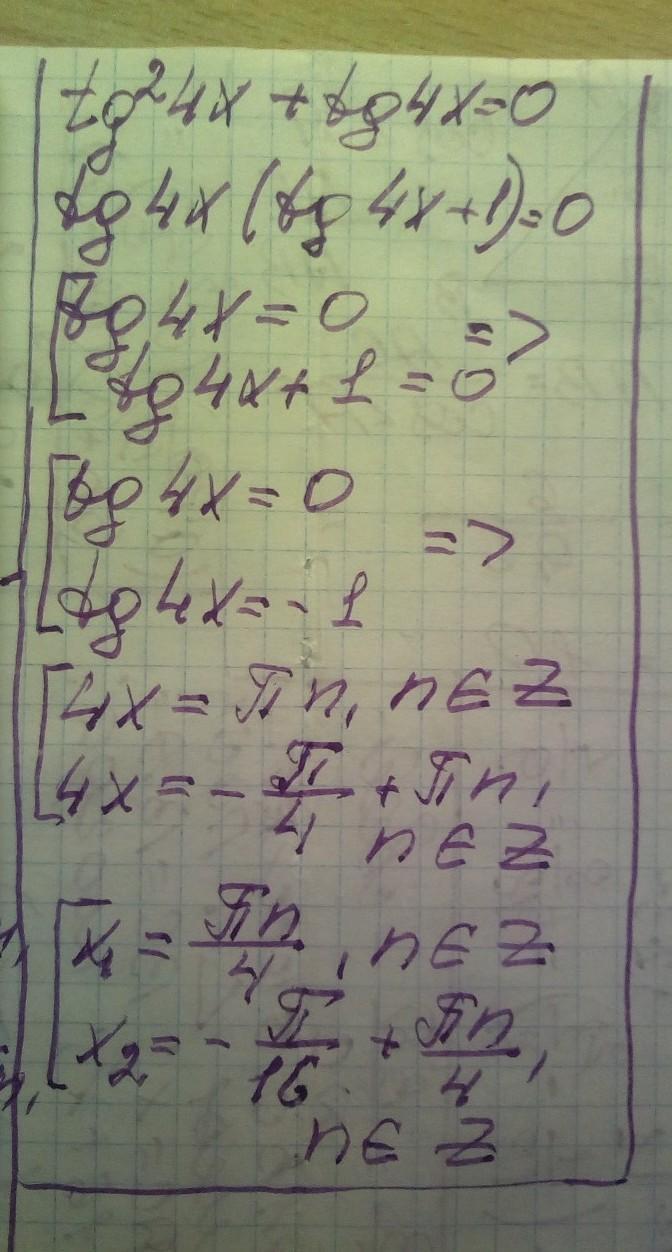 tg²4x + tg4x=0
tg 4x (tg 4x+1)=0
tg 4x = 0 =>
tg 4x + 1 = 0
tg 4x = 0 =>
tg 4x = - 1
4x = πn, n∈Z
4x = - π/4 + πn,
n∈Z
x₁ = πn/4, n∈Z
x₂ = - π/16 + πn/4,
n∈Z